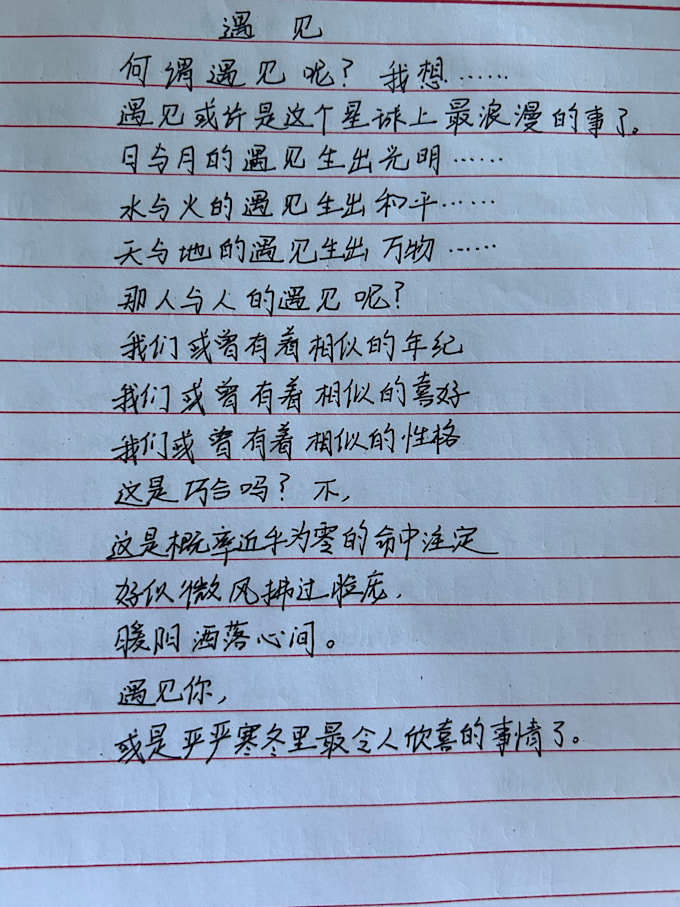 遇见
何谓遇见呢？我想……
遇见或许是这个星球上最浪漫的事了。
日与月的遇见生出光明……
水与火的遇见生出和平……
天与地的遇见生出万物……
那人与人的遇见呢？
我们或曾有着相似的年纪
我们或曾有着相似的喜好
我们或曾有着相似的性格
这是巧合吗？不，
这是概率近乎为零的命中注定
好似微风拂过脸庞，
暖阳洒落心间。
遇见你，
或是严严寒冬里最令人欣喜的事情了。